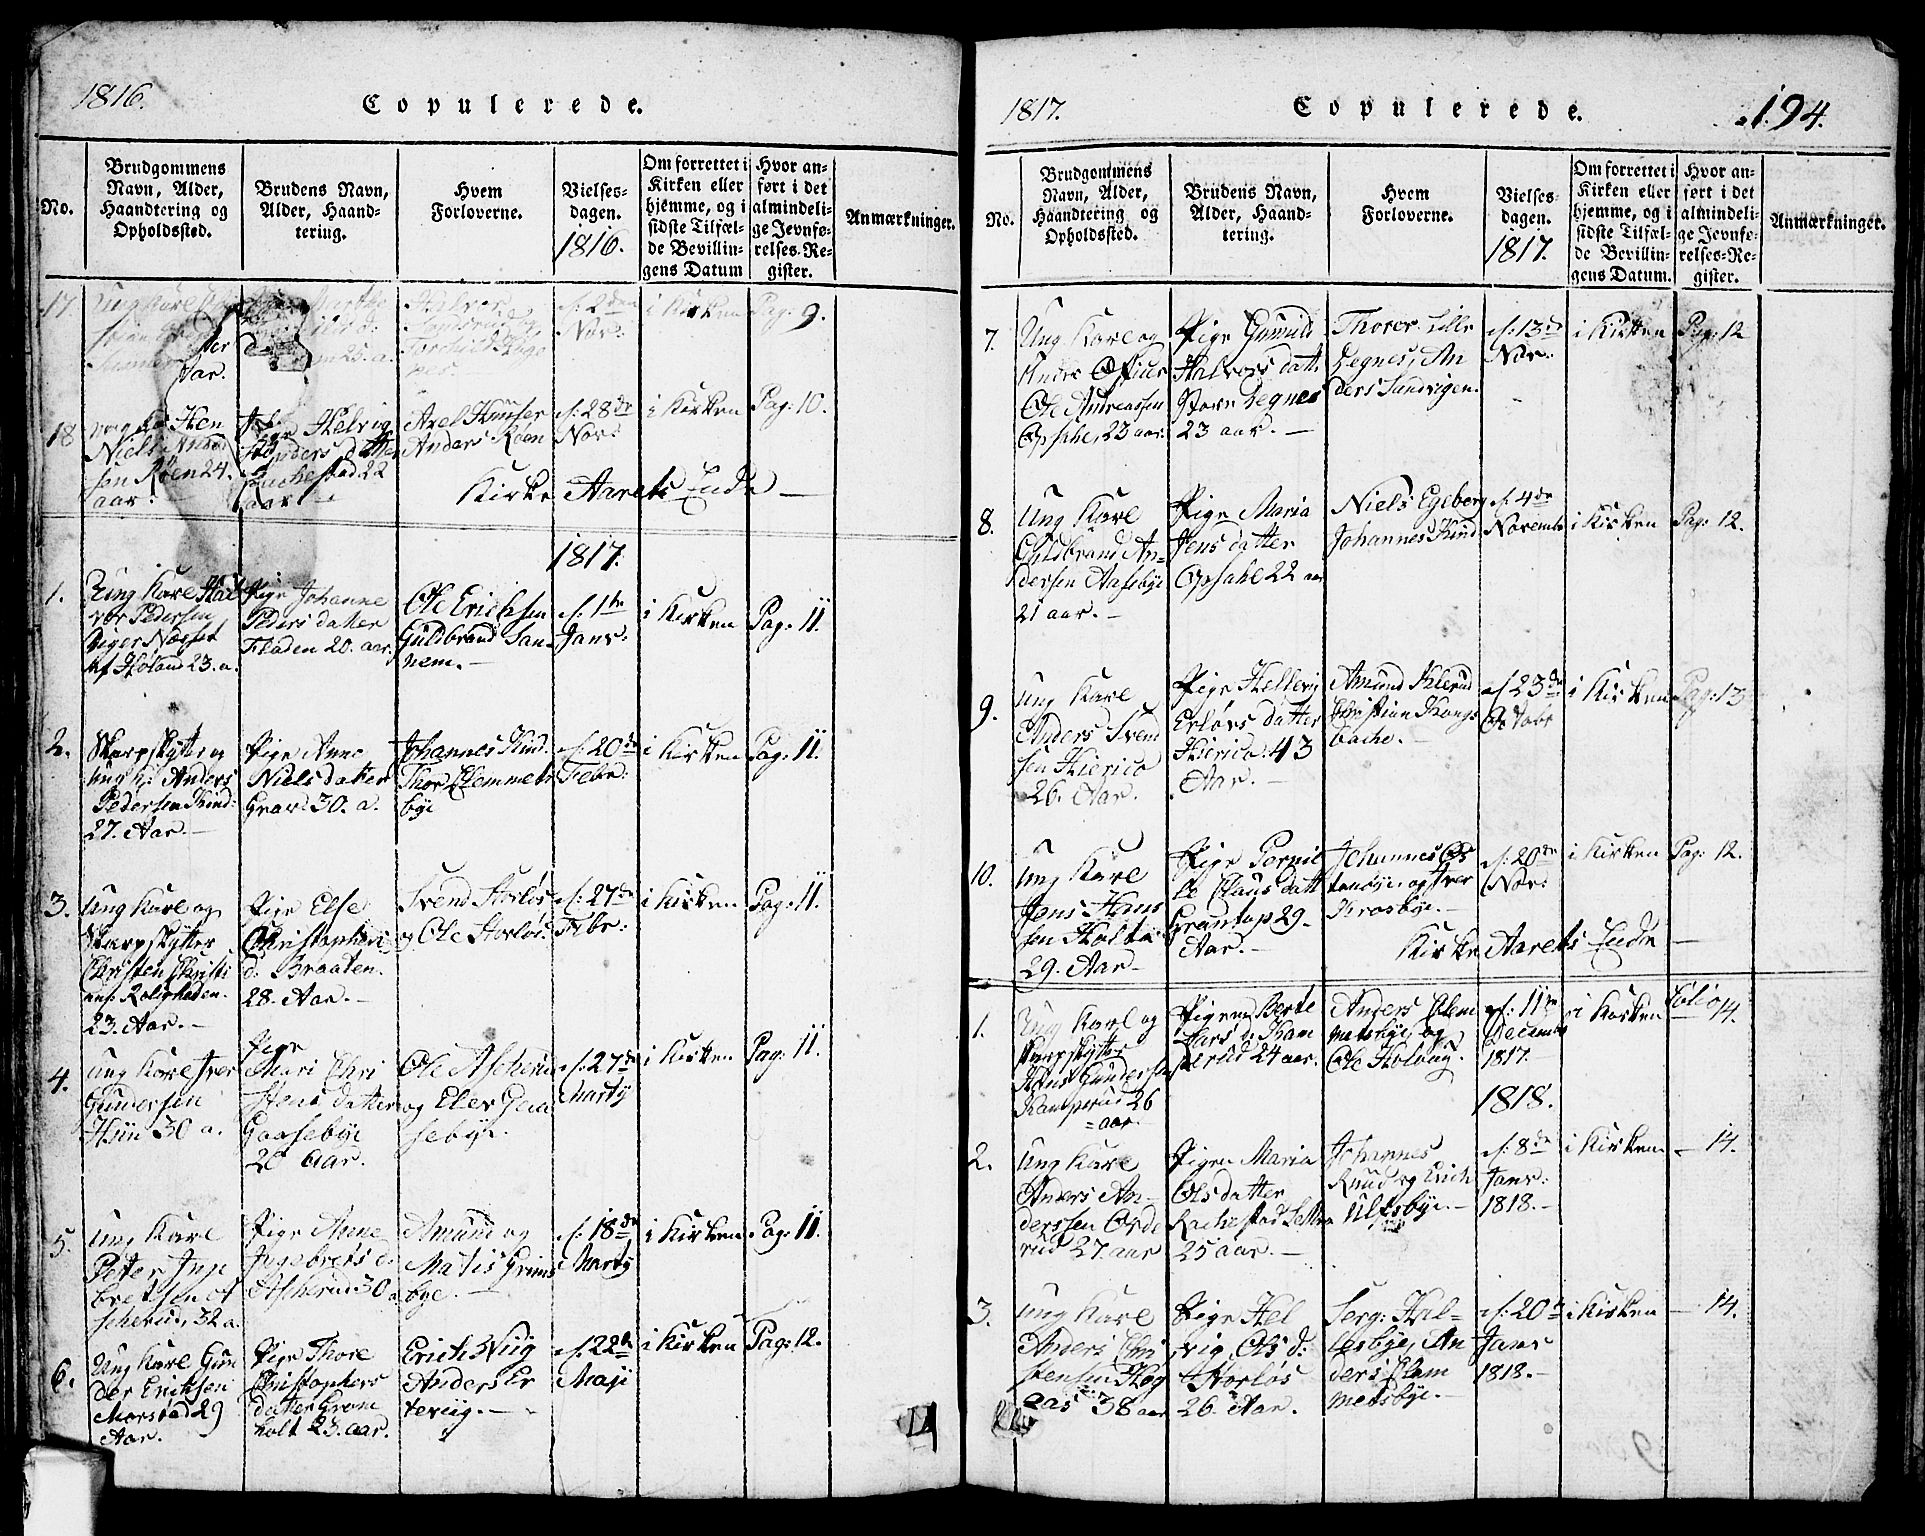 1816.
Copulerede.
No.
Brudgommens
Navn, Alder,
Haandtering og
Opholdssted.
Brudens Navn,
Alder, Haand-
tering.
Hvem
Forloverne.
Vielses-
dagen.
1816.
Om forrettet i
Kirken eller
hjemme, og i
sidste Tilfæl-
de Bevillin-
gens Datum
Hvor an-
ført i det
almindeli-
ge Jevnfø-
relses-Re-
gister.
Anmærkninger.
17.
Ung Karl
aar.
25. a.
d. 2den
Nov:
i Kirken
Pag: 9.
18
Niels
sen Røen 24.
aar.
Pige Helvig
Anders datter
22
aar
Axel
Anders Røen
d. 28de
Nov:
i Kirken
Pag: 10.
Kirke Aarets Ende
1817.
1.
Ung Karl Hal
vor Pedersen
af Høland 23. a.
Pige Johanne
Peders datter
Fladen 20. aar.
Ole Erichsen
Guldbrand San-
nem.
d. 1te
Janv:
i Kirken
Pag: 11.
2.
Skarpskytter og
ung k: Anders
Pedersen Kind:
27. Aar.
Pige Anne
Niels datter
Grav: 30. a.
Johannes Kind.
Thor Clemmets
bye
d. 20de
Febr:
i Kirken
Pag: 11.
3.
Ung Karl og
Skarpskytter
Christen Christi
ans: Roligheden.
23. Aar.
Pige Else
Christophers
d: Braaten.
28. Aar.
Svend Storløs
og Ole Storløs.
d. 27de
Febr:
i Kirken
Pag: 11.
4.
Ung Karl Iver
Gundersen
30 a.
Pige
Mari Chri
stens datter
Gaasebye
Aar.
Ole Ascherud
og Elev Gaa
sebye.
d. 27de
Martij
i Kirken
Pag: 11.
5.
Ung Karl
Peter Inge
bretsen A
scherud, 32 a.
Pige Anne
Ingebrets d.
Ascherud 30 a.
Amund og
Matis Grims
bye.
d. 18de
Martij
i Kirken
Pag: 11.
6.
Ung Karl Gun
der Erichsen
Morstad 29
Aar.
Pige Thore
Christophers
datter Grøn
holt 23. aar.
Erich Wiig
Anders Er
tevig.
d. 22de
Maji
i Kirken
Pag: 12.
1817.
Copulerede.
194.
No.
Brudgommens
Navn, Alder,
Haandtering og
Opholdssted.
Brudens Navn,
Alder, Haand-
tering.
Hvem
Forloverne.
Vielses-
dagen.
1817.
Om forrettet i
Kirken eller
hjemme, og i
sidste Tilfæl-
de Bevillin-
gens Datum.
Hvor an-
ført i det
almindeli-
ge Jevnfø-
relses-Re-
gister.
Anmærkninger.
7.
Ung Karl og
Under Officer
Ole Andreassen
Opsahl, 23 aar.
Pige Gunild
Halvors datt:
Store Legnes
23 aar.
Thorer Lille
Legnes, An
ders Sandvigen.
d. 13de
Nov:
i Kirken
Pag: 12
8.
Ung Karl
Guldbrand An-
dersen Aasebye
21 aar.
Pige Maria
Jens datter
Opsahl 22 aar
Niels Egeberg
Johannes Kind
d. 4de
Novemb:
i Kirken
Pag: 12.
9.
Ung Karl
Anders Svend
sen Kierico
26. Aar.
Pige Hellevig
Erlövs datter
Kierico: 43
Aar.
Amund Klerud
Christian Kongs
bache.
d. 23de
Octobr
i Kirken
Pag: 13
10.
Ung Karl
Jens Hans
sen Holta
29. Aar
Pige Pernil
le Claus datt
Grantop 29.
Aar.
Johannes Øs
tenbye, og Iver
Krosbye.
d. 20de
Nov:
i Kirken
Pag: 12.
Kirke Aarets Ende
1.
Ung Karl og
Skarpskytter
Hans Gundersen
Kamperud 26
aar.
Pigen Berte
Lars d: Kam
perud 24 aar.
Anders Clem
metsbye, og
Ole Kolvag.
d. 11te
Decembr
1817.
i Kirken
Folio 14.
1818.
2.
Ung Karl
Anders An-
derssen Orde
rud 27. aar
Pigen Maria
Ols datter
Rachestad
25 aar.
Johannes
Ruud og Erich
Ulfsbye.
d. 8de
Janv:
1818.
i Kirken
14.
3.
Ung Karl
Anders Chri
stensen Høg
aas 38 aar
Pige Hel
vig, Ols d:
Storløs
26. Aar.
Serg: Hil-
lesbye, An
ders Clem
metsbye.
d. 20de
Janv
1818.
i Kirken
14.